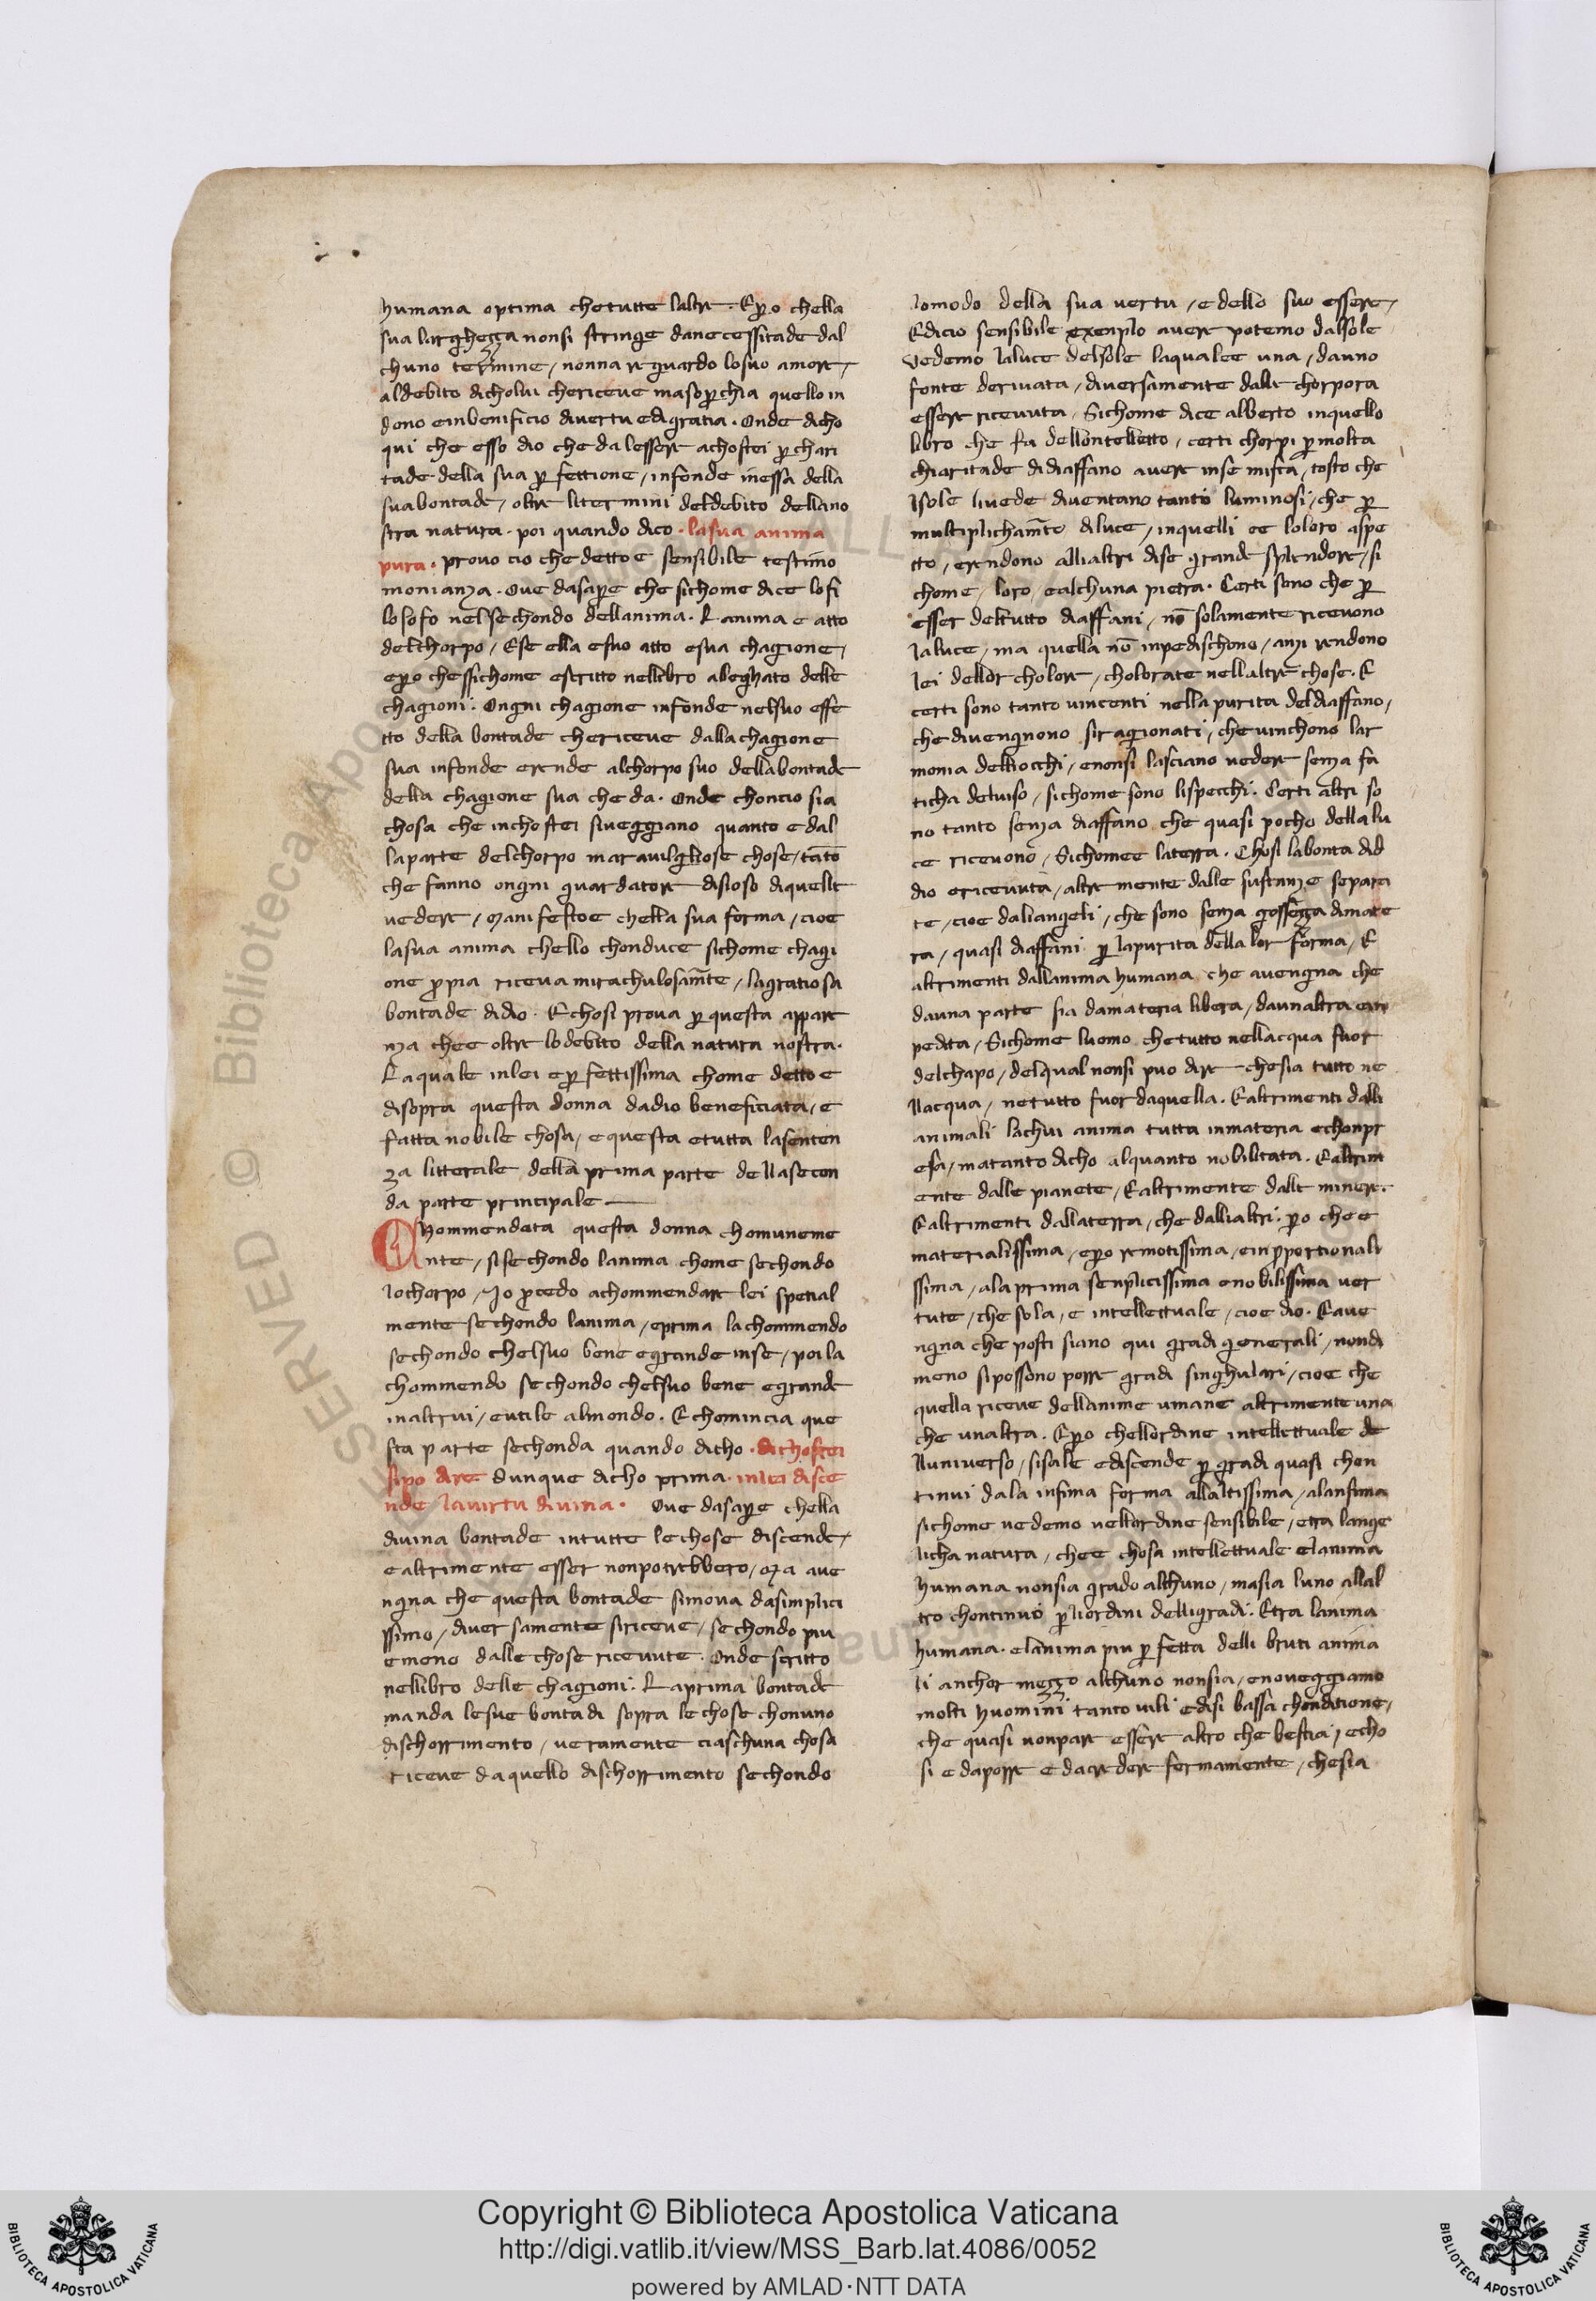 humana optima che tutte laltre. Epo chella
sua larghezza nonsi stringe danecessitade dal
chuno termine / nonna reguardo losuo amore /
aldebito dicholui chericeve masopchia quello in
dono embenificio divertu edigratia. Onde dicho
qui che esso dio che da lessere achostei p chari
tade della sua pfettione / infonde inessa della
suabontade / oltre litermini deldebito dellano
stra natura. poi quando dico. lasua anima
pura. provo cio che detto e sensibile testimo
monianza. Ove dasape che sichome dice lofi
losofo nelsechondo dellanima. Lanima e atto
delchorpo / Ese ella esuo atto esua chagione /
epo chessichome escritto nellibro aleghato delle
chagioni. Ongni chagione infonde nelsuo effe
tto della bontade chericeve dallachagione
sua infonde erende alchorpo suo dellabontade
della chagione sua che da. Onde choncio sia
chosa che inchostei siveggiano quanto e dal
laparte delchorpo maravilgliose chose / tāto
che fanno ongni guardatore disioso diquelle
vedere / manifestoe chella sua forma / cioe
lasua anima chello chonduce sichome chagi
one ppia riceva mirachulosamte / lagratiosa
bontade didio. Echosi prova p questa appare
nza chee oltre lodebito della natura nostra.
Laquale inlei e pfettissima chome detto e
disopra questa donna dadio beneficiata / e
fatta nobile chosa / e questa etutta lasenten
za litterale della prima parte dellasecon
da parte principale
Chommendata questa donna chomuneme
nte / sisechondo lanima chome sechondo
lochorpo / Io pcedo achommendare lei spetial
mente sechondo lanima / eprima lachommendo
sechondo chelsuo bene egrande inse / poi la
chommendo sechondo chelsuo bene egrande
inaltrui / eutile almondo. Echomincia que
sta parte sechonda quando dicho. dichostei
sipo dire dunque dicho prima. inlei disce
nde lavirtu divina. Ove dasape chella
divina bontade intutte lechose discende /
ealtrimente esser nonpotrebbero / ma ave
ngna che questa bontade simova dasimplici
ssimo / diversamente siriceve / sechondo piu
emeno dalle chose ricevute. Onde scritto
nellibro delle chagioni. Laprima bontade
manda lesue bontadi sopra lechose chonuno
dischorrimento / veramente ciaschuna chosa
riceve daquello dischorrimento sechondo
lomodo della sua vertu / e dello suo essere /
Edicio sensibile exenplo avere potemo dalsole
Vedemo laluce delsole laqualee una / dauno
fonte derivata / diversamente dalle chorpora
essere ricevuta. Sichome dice alberto inquello
libro che fa dellontelletto / certi chorpi p molta
chiaritade di diaffano avere inse mista / tosto che
lsole livede diventano tanto luminosi / che p
multiplichamto diluce / inquelli ee loloro aspe
tto / erendono alli altri dise grande splendore / si
chome / loro / ealchuna pietra. Certi sono che p
esser deltutto diaffani / nō solamente ricevono
laluce / ma quella nō inpedischono / anzi rendono
lei dellor cholore / cholorate nell altre chose. E
certi sono tanto vincenti nella purita deldiaffano /
che divengnono si ragionati / che vinchono lar
monia dellocchi / enonsi lasciano vedere senza fa
ticha delviso / sichome sono lispecchi. Certi altri so
no tanto senza diaffano che quasi pocho della lu
ce ricevono / Sichomee laterra. Chosi labonta did
dio ericevuta / altre mente dalle sustanze separa
te / cioe daliangeli / che sono senza grossezza dimate
ra / quasi diaffani p lapurita della lor forma / E
altrimenti dallanima humana che avengna che
dauna parte sia damateria libera / daunaltra e in
pedita / Sichome luomo chetutto nellacqua fuor
delchapo / delqual nonsi puo dire chesia tutto ne
llacqua / netutto fuor daquella. Ealtrimenti dalli
animali lachui anima tutta inmateria echonpr
esa / matanto dicho alquanto nobilitata. Ealtrim
ente dalle pianete / Ealtrimente dalle minere.
Ealtrimenti dallaterra / che dallialtri. po che e
materialissima / epo remotissima / einpportionali
ssima / alaprima senplicissima enobilissima ver
tute / che sola / e intellettuale / cioe dio. Eave
ngna che posti siano qui gradi generali / nondi
meno sipossono porre gradi singhulari / cioe che
quella riceve dellanime umane altrimente una
che unaltra. Epo chellordine intellettuale de
lluniverso / sisale ediscende p gradi quasi chon
tinui dala infima forma allaltissima / alanfima
sichome vedemo nellordine sensibile / etra lange
licha natura / chee chosa intellettuale elanima
humana nonsia grado alchuno / masia luno allal
tro chontinuo p liordini delligradi. Etra lanima
humana. elanima piu pfetta delli bruti anima
li anchor mezzo alchuno nonsia / enoveggiamo
molti huomini tanto vili edisi bassa chonditione /
che quasi nonpare essere altro che bestia / echo
si e daporre e dacredere fermamente / chesia
Copyright © Biblioteca Apostolica Vaticana
http://digi.vatlib.it/view/MSS_Barb.lat.4086/0052
powered by AMLAD·NTT DATA
BIBLIOTECA APOSTOLICA VATICANA
BIBLIOTECA APOSTOLICA VATICANA